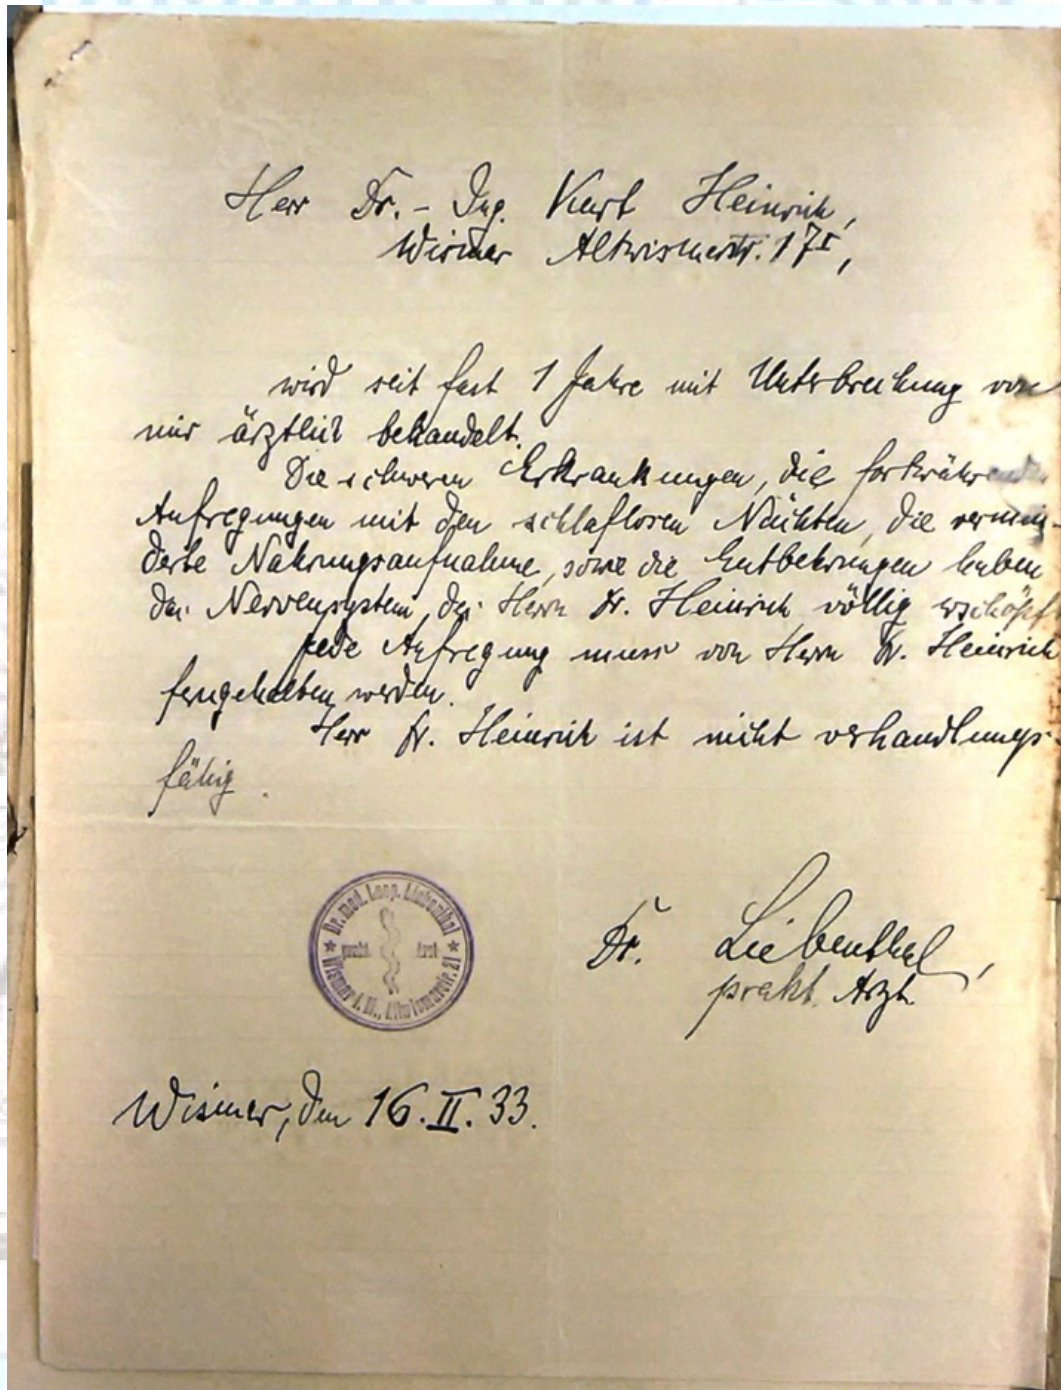 Herr Dr.-Ing. Kurt Heinrich,
Wismar Altwismarstr. 17I,
wird seit fast 1 Jahre mit Unterbrechung von
mir ärztlich behandelt.
Die schweren Erkrankungen, die fortwährenden
Aufregungen mit den schlaflosen Nächten, die vermin-
derte Nahrungsaufnahme, sowie die Entbehrungen haben
das Nervensystem des Herrn Dr. Heinrich völlig erschöpft.
Jede Aufregung muss von Herrn Dr. Heinrich
ferngehalten werden.
Herr Dr. Heinrich ist nicht verhandlungs-
fähig.
Dr. med. Leop. Liebenthal
prakt. Arzt
Wismar i. M., Altwismarstr. 21
Dr. Liebenthal,
prakt. Arzt
Wismar, den 16.II.33.